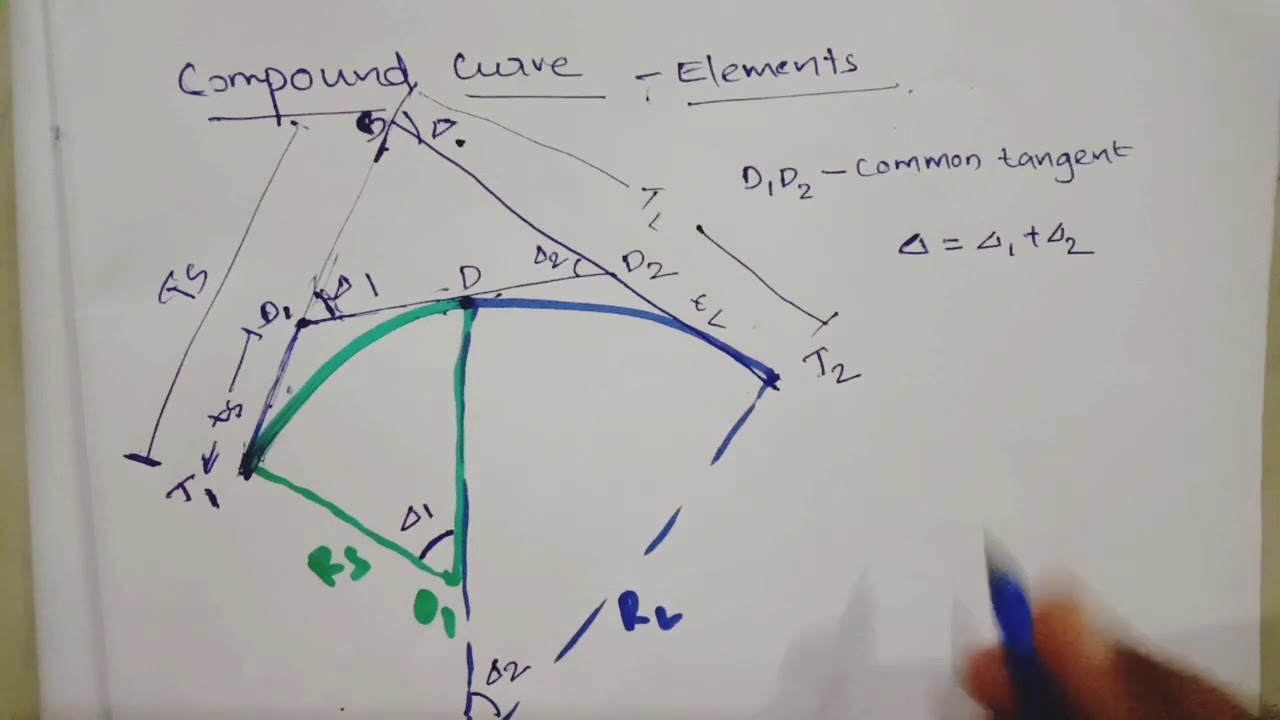 Compound Curve - Elements
B
Δ
D₁D₂ - Common tangent
Δ = Δ₁ + Δ₂
TL
Ts
Δ2
D2
D
Δ1
D1
tL
T2
ts
T1
Δ1
Rs
O1
RL
Δ2